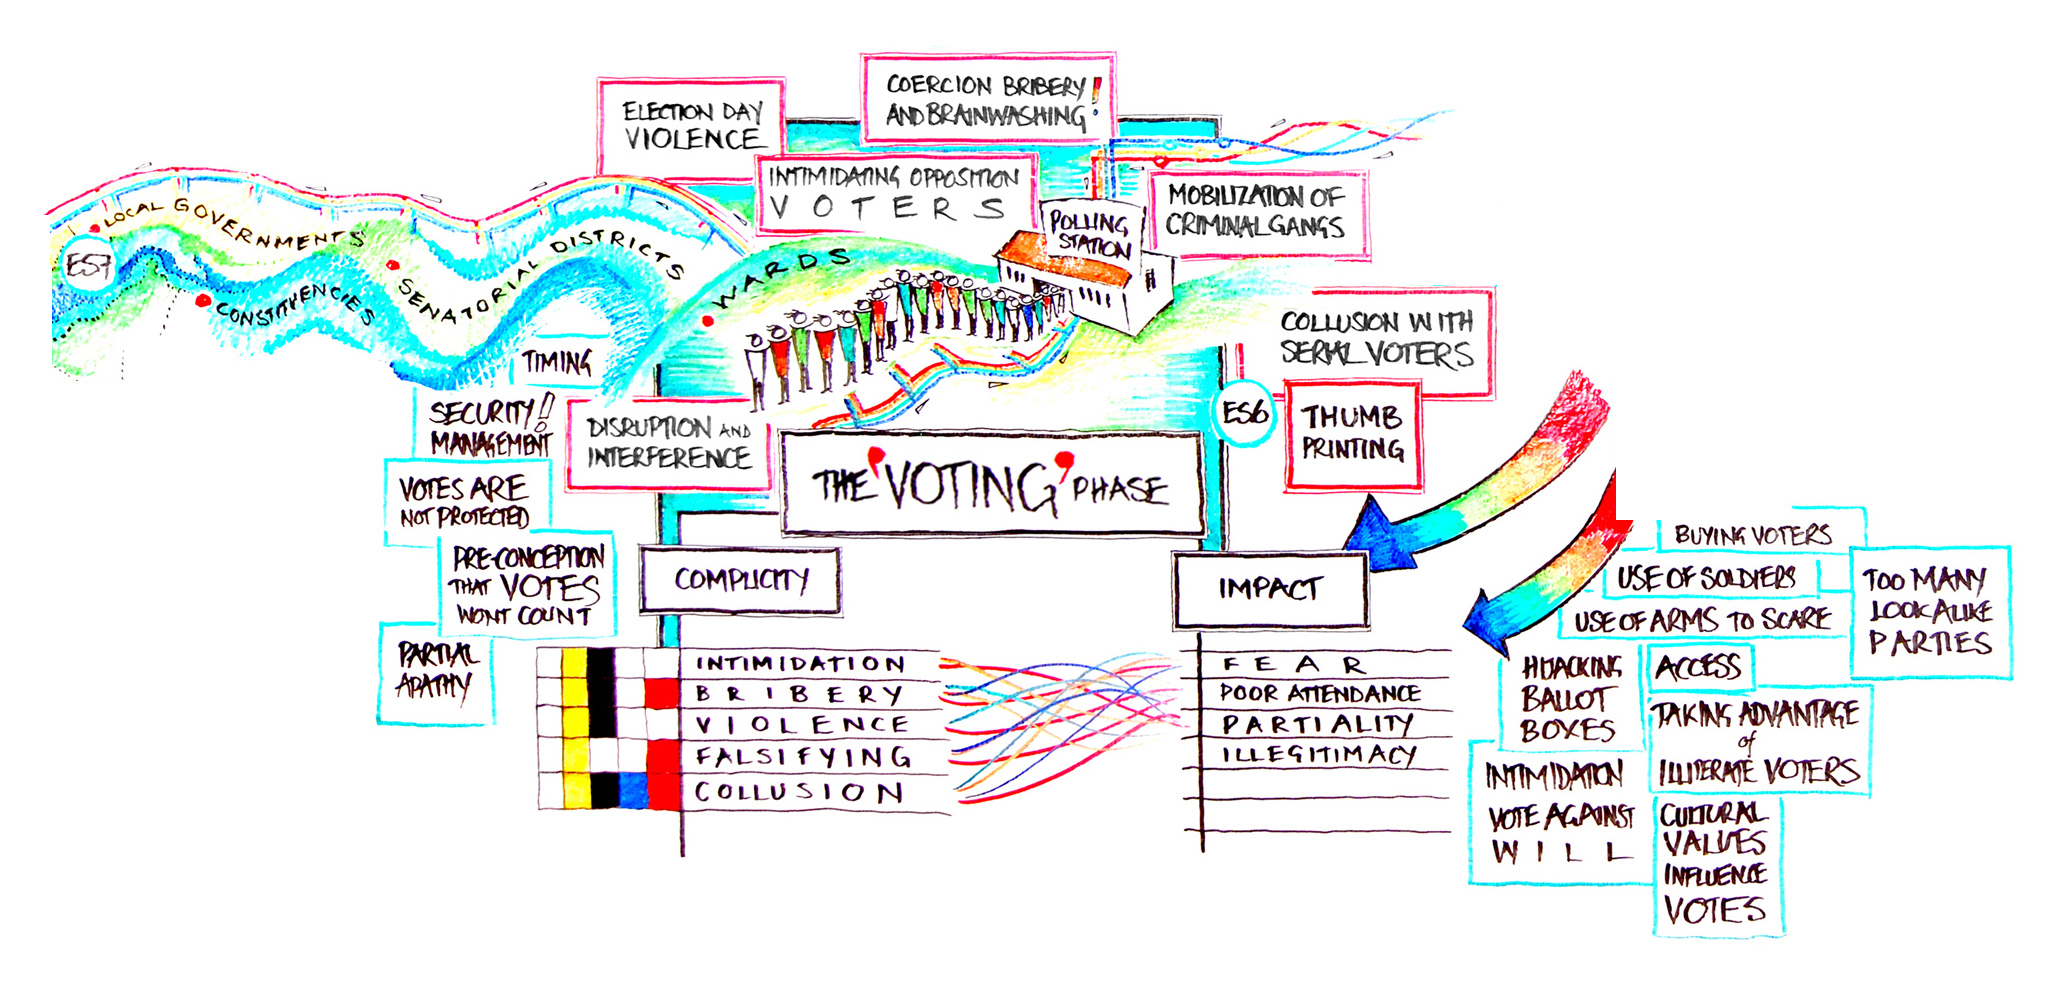 COERCION BRIBERY!
AND BRAINWASHING
ELECTION DAY
VIOLENCE
INTIMIDATING OPPOSITION
VOTERS
MOBILIZATION OF
CRIMINAL GANGS
POLLING
STATION
LOCAL GOVERNMENTS
ES7
CONSTITUENCIES
SENATORIAL DISTRICTS
WARDS
TIMING
SECURITY!
MANAGEMENT
DISRUPTION AND
INTERFERENCE
VOTES ARE
NOT PROTECTED
PRE-CONCEPTION
THAT VOTES
WONT COUNT
PARTIAL
APATHY
COLLUSION WITH
SERIAL VOTERS
ES6
THUMB
PRINTING
THE 'VOTING' PHASE
COMPLICITY
IMPACT
INTIMIDATION
BRIBERY
VIOLENCE
FALSIFYING
COLLUSION
FEAR
POOR ATTENDANCE
PARTIALITY
ILLEGITIMACY
BUYING VOTERS
USE OF SOLDIERS
USE OF ARMS TO SCARE
TOO MANY
LOOKALIKE
PARTIES
HIJACKING
BALLOT
BOXES
ACCESS
TAKING ADVANTAGE
of
ILLITERATE VOTERS
INTIMIDATION
VOTE AGAINST
WILL
CULTURAL
VALUES
INFLUENCE
VOTES